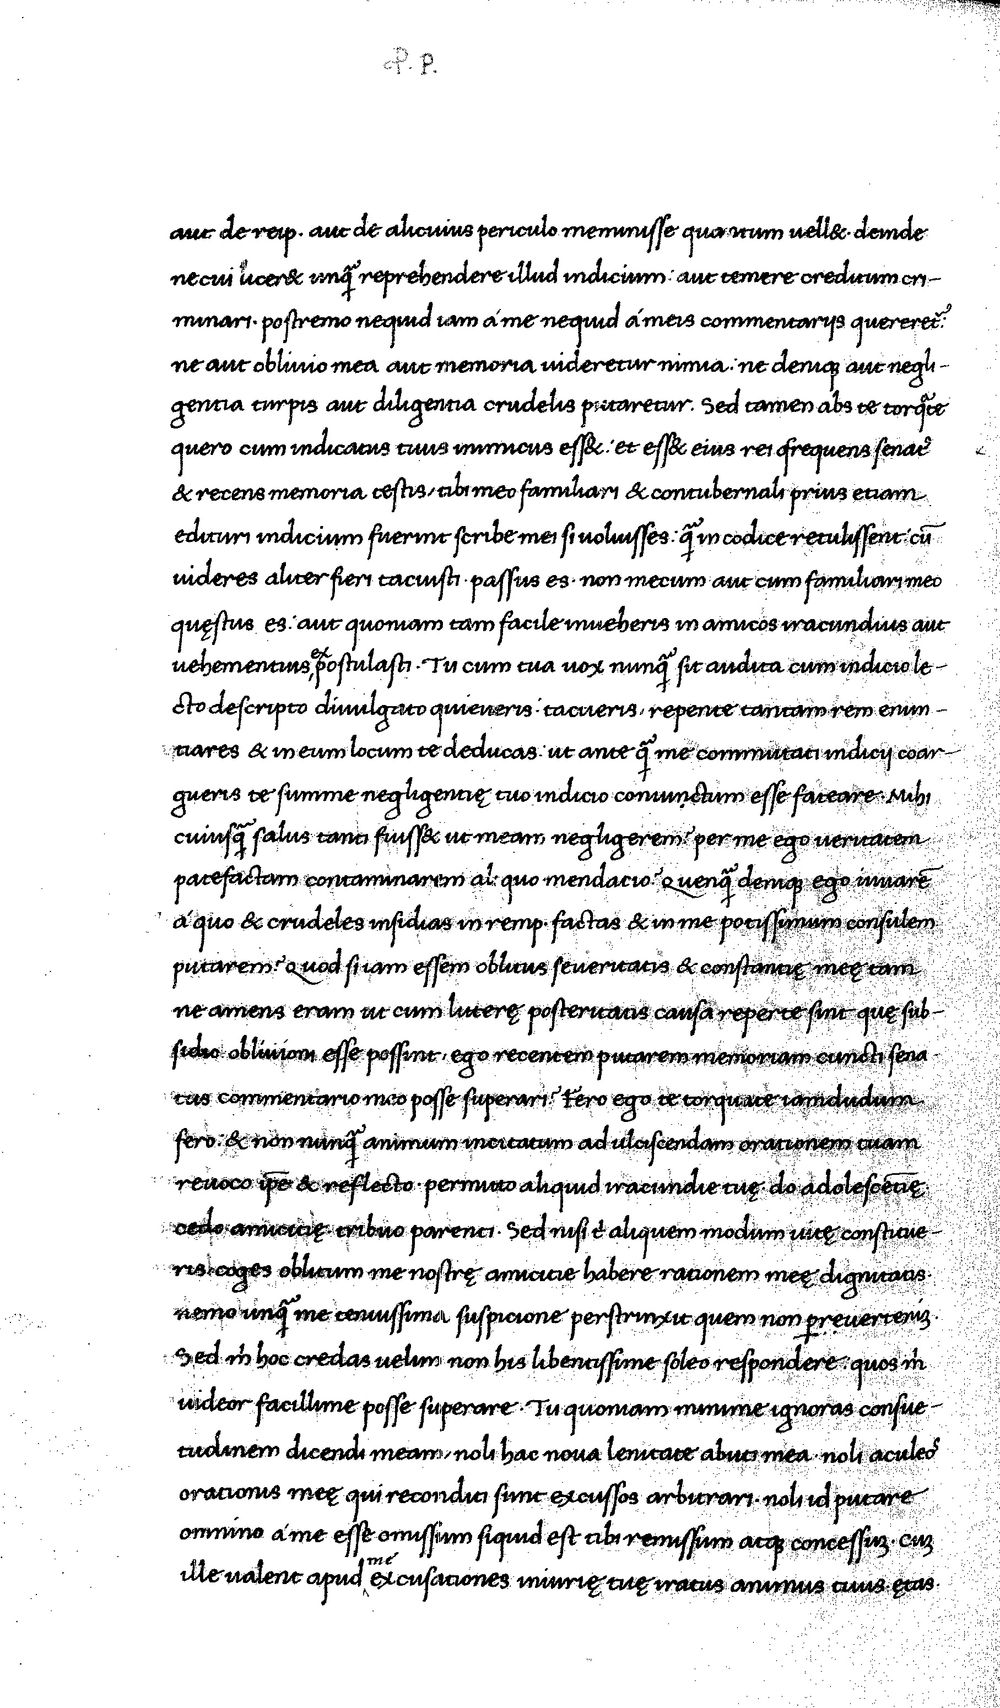 P. P.
aut de reip. aut de alicuius periculo meminisse quantum uell&. deinde
necui licer& unq̃ reprehendere illud indicium: aut temere creditum cri-
minari. postremo nequid iam á me nequid á meis commentarijs quereret̃.
ne aut obliuio mea aut memoria uideretur nimia: ne deniq; aut negli-
gentia turpis aut diligentia crudelis putaretur. Sed tamen abs te torq̃te
quero cum indicatus tuus inimicus ess&: et ess& eius rei frequens senat᾽
& recens memoria testis, tibi meo familiari & contubernali prius etiam
edituri indicium fuerint scribe mei si uoluisses: q̃ in codice retulissent: cū
uideres aliter fieri tacuisti. passus es. non mecum aut cum familiari meo
quęstus es: aut quoniam tam facile inueheris in amicos iracundius aut
uehementius expostulasti. Tu cum tua uox nunq̃ sit audita cum indicio le-
cto descripto diuulgato quieueris. tacueris, repente tantam rem enun-
tiares & in eum locum te deducas: ut ante q̃ me commutati indicij coar-
gueris te summe negligentię tuo indicio coniunctum esse fateare. Mihi
cuiusq̃ salus tanti fuiss& ut meam negligerem? per me ego ueritatem
patefactam contaminarem al quo mendacio? Quenq̃ deniq; ego iuuarē
á quo & crudeles insidias in remp. factas & in me potissimum consulem
putarem? Quod si iam essem oblitus seueritatis & constantię meę tam
ne amens eram ut cum litterę posteritatis causa reperte sint quę sub-
sidio obliuioni esse possint, ego recentem putarem memoriam cuncti sena-
tus commentario meo posse superari? Fero ego te torquate iamdudum
fero: & non nunq̃ animum incitatum ad ulciscendam orationem tuam
reuoco ip̄e & reflecto. permitto aliquid iracundie tuę. do adolescētię.
cedo amicitię. tribuo parenti. Sed nisi t̓ aliquem modum uitę constitue-
ris. coges oblitum me nostrę amicitie habere rationem meę dignitatis.
nemo unq̃ me tenuissima suspicione perstrinxit quem non preuerterim.
Sed m̓ hoc credas uelim non his libentissime soleo respondere. quos m̓
uideor facillime posse superare. Tu quoniam minime ignoras consue-
tudinem dicendi meam, noli hac noua lenitate abuti mea. noli aculeo᾽
orationis meę qui reconditi sunt excussos arbitrari. noli id putare
omnino á me esse omissum siquid est tibi remissum atq; concessuz. Cuz
ille ualent apud me excusationes iniurię tuę iratus animus tuus. ętas.